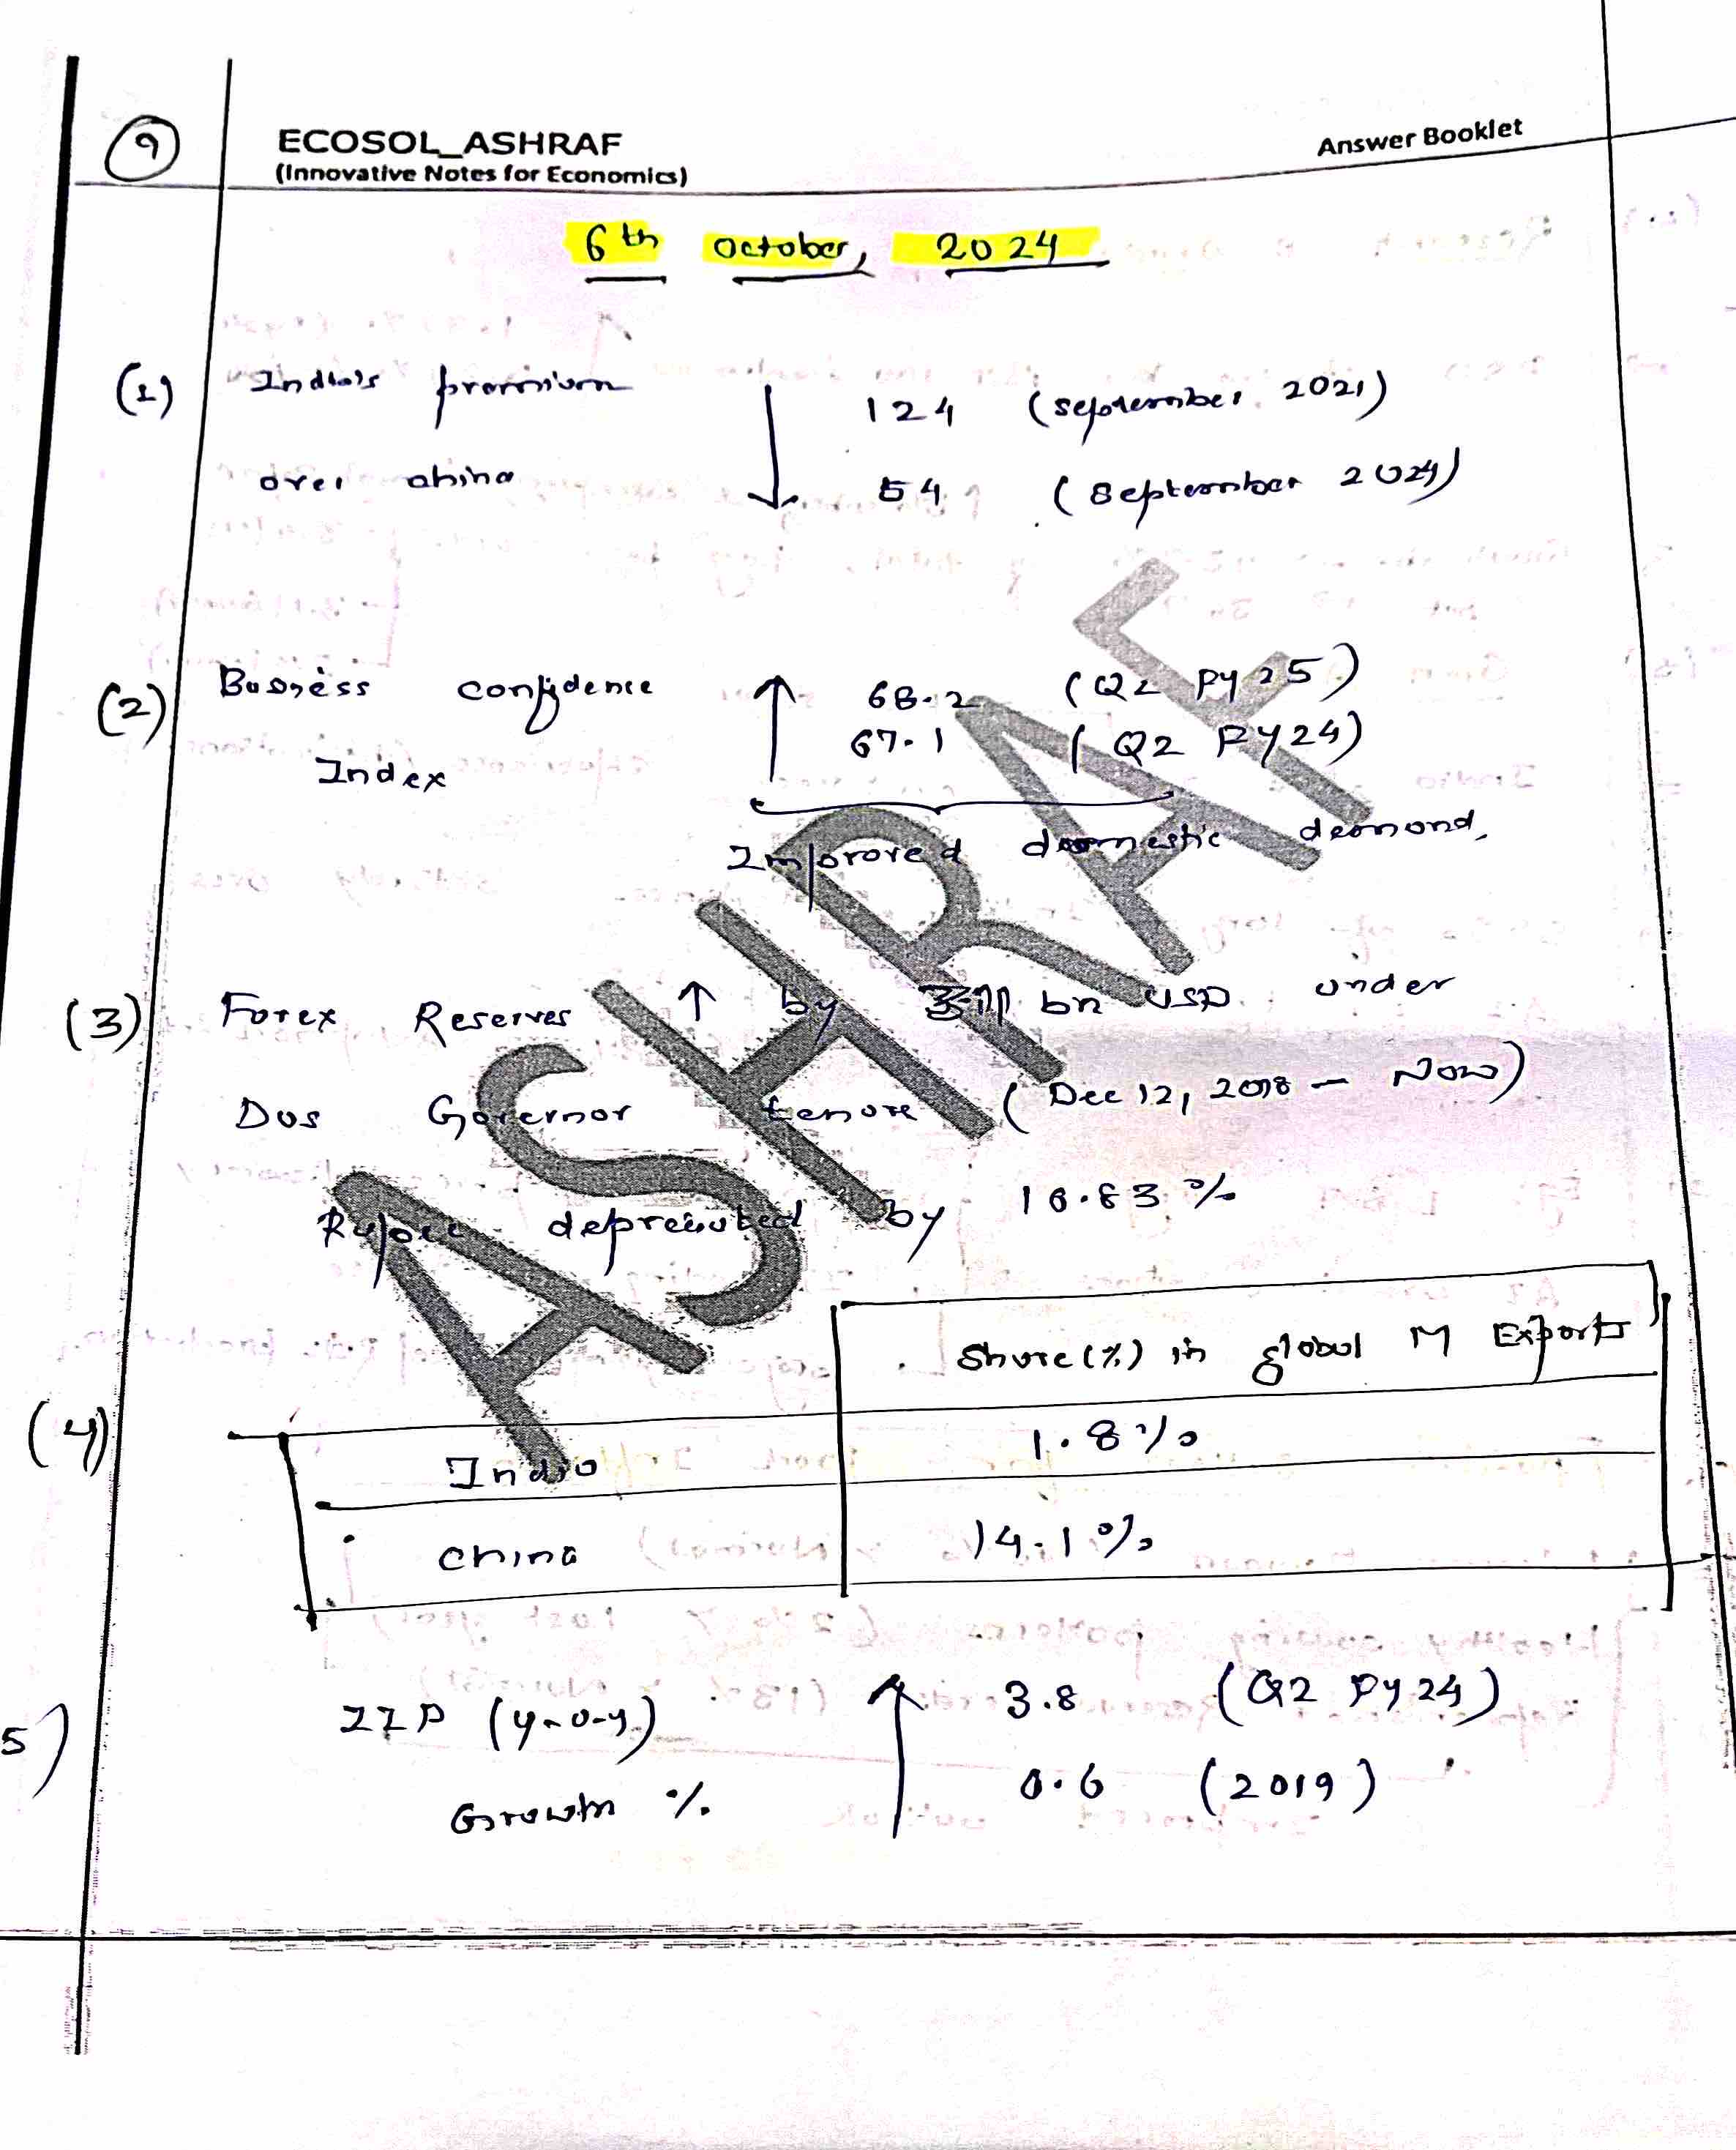 9
ECOSOL_ASHRAF
(Innovative Notes for Economics)
Answer Booklet
6th October, 2024
(1) India's premium ↓ 124 (September 2021)
over china 54 (September 2024)
(2) Business confidence ↑ 68.2 (Q2 FY25)
67.1 (Q2 FY24)
Index
Improved domestic demand,
(3) Forex Reserves ↑ by bn USD under
Das Governor tenore (Dec 12, 2018 - Now)
Rupee depreciated by %
Share(%) in global M Exports
(4)
India 1.8%
China 14.1%
5) IIP (y-o-y) ↑ 3.8 (Q2 FY24)
Growth % 0.6 (2019)
ASHRAF